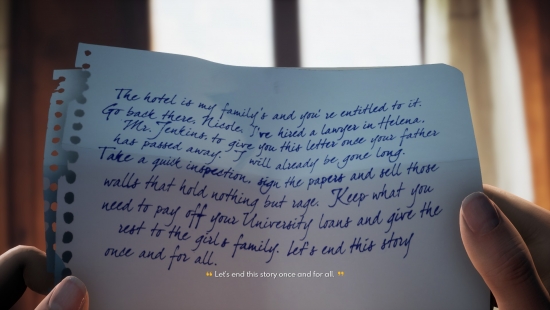 The hotel is my family's and you're entitled to it.
Go back there, Nicole. I've hired a lawyer in Helena,
Mr. Jenkins, to give you this letter once your father
has passed away. I will already be gone long.
Take a quick inspection, sign the papers and sell those
walls that hold nothing but rage. Keep what you
need to pay off your University loans and give the
rest to the girl's family. Let's end this story
once and for all.
Let's end this story once and for all.